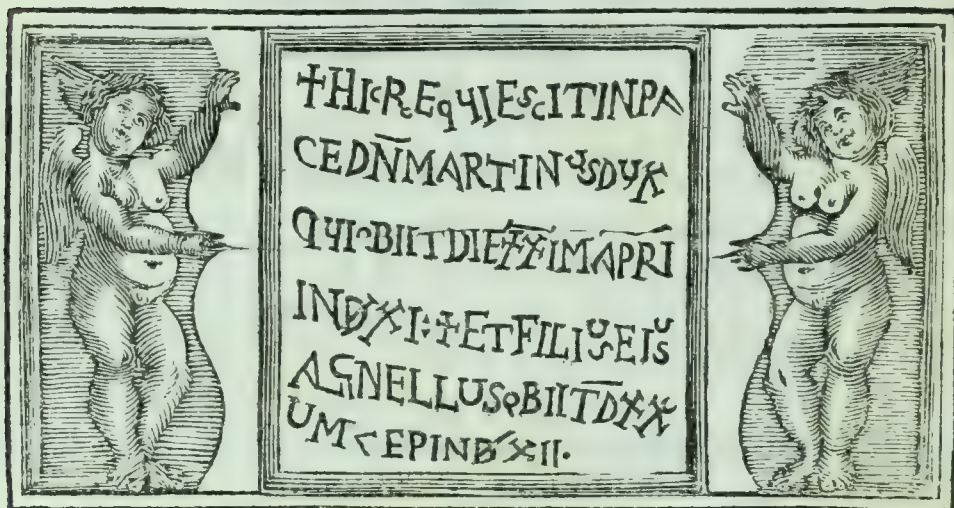 ✝HIcREqUIEScITINPA
CEDN̄MARTINUSDUX
QUIOBIITDIEXXIMAPRI
INDXI:✝ETFILIUSEIUS
AGNELLUSOBIITDXX
UMCEPINDXII·